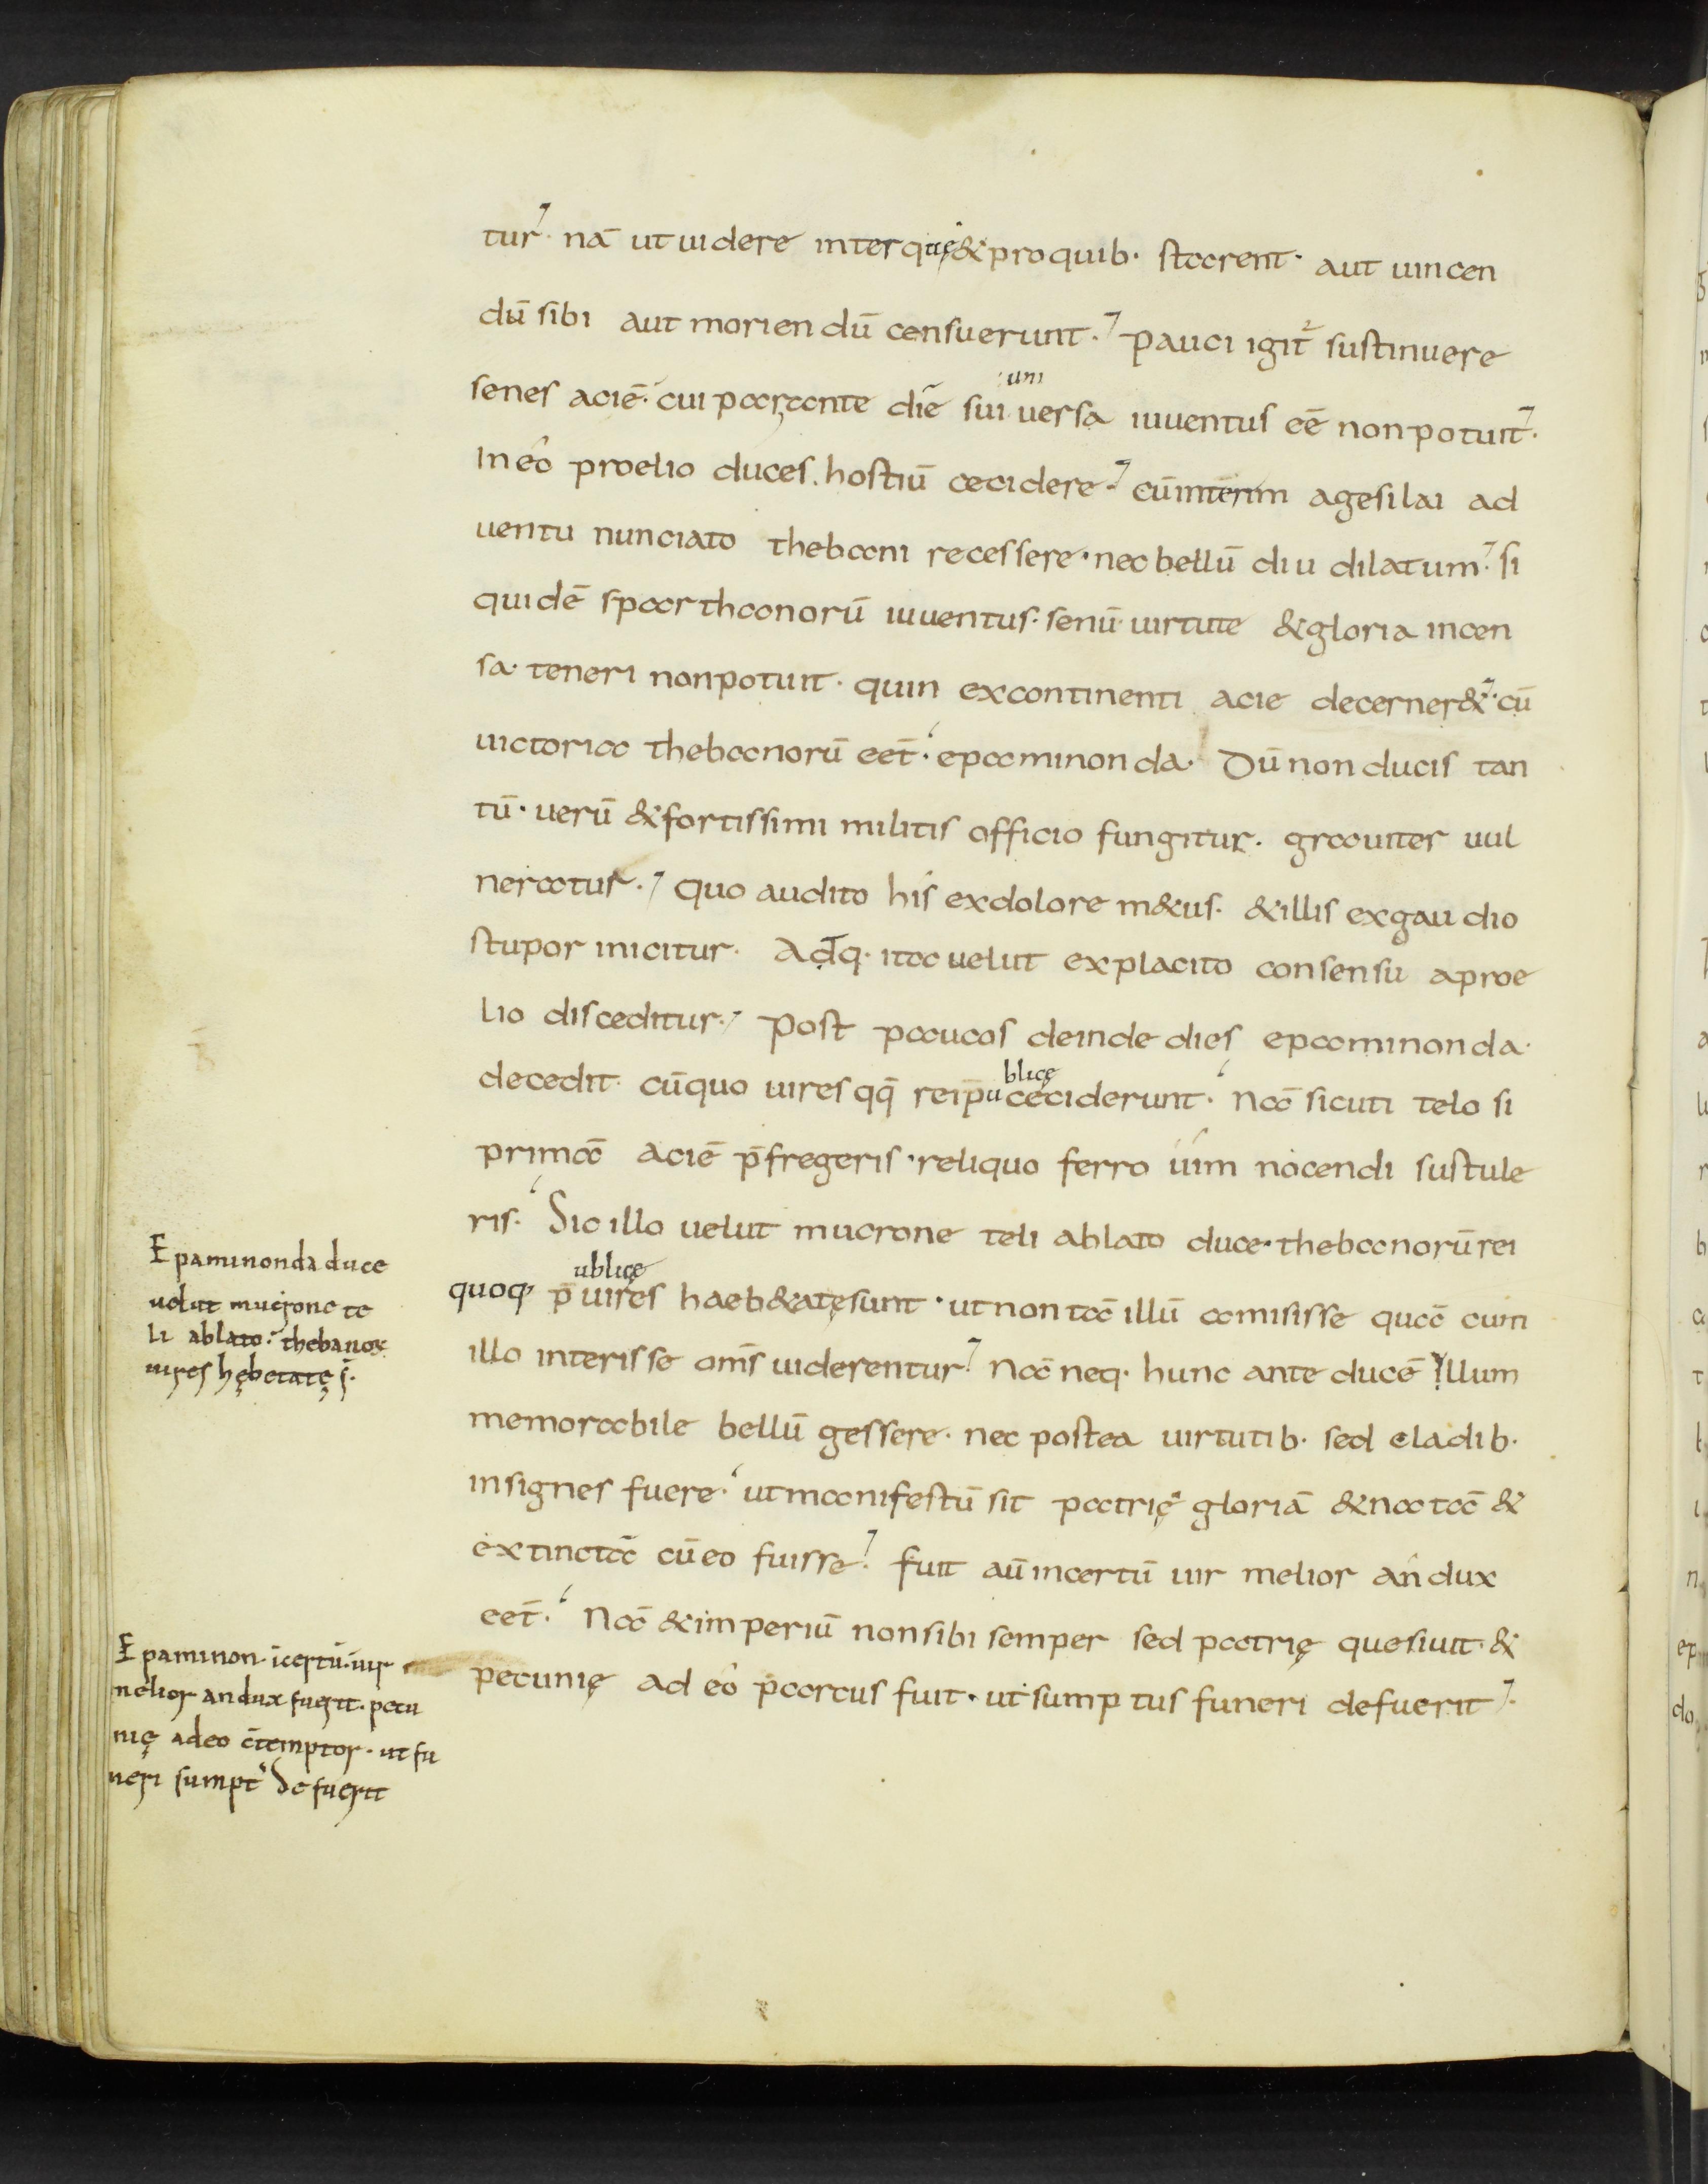 tur· nā ut uidere inter quę & pro quib· starent· aut uincen
dū sibi aut moriendū censuerunt· Pauci igit sustinuere
senes aciē· cui par ante diē sui uersa iuuentus eē non potuit·
uni
In eo proelio duces hostiū cecidere· cū interim agesilai ad
uentu nunciato thebani recessere· nec bellū diu dilatum· si
quidē sparthanorū iuuentus· senū uirtute & gloria incen
sa· teneri non potuit· quin ex continenti acie decerner&· cū
uictoria thebanorū eēt· epaminonda· Dū non ducis tan
tū· uerū & fortissimi militis officio fungitur· grauiter uul
neratus· quo audito his ex dolore m&us· & illis ex gaudio
stupor inicitur· Adq· ita uelut ex placito consensu a proe
lio disceditur· Post paucos deinde dies epaminonda·
decedit· cū quo uires qq̄ reip̄u ceciderunt· Nā sicuti telo si
blicę
primā aciē p̄fregeris· reliquo ferro uim nocendi sustule
ris· Sic illo uelut mucrone teli ablato duce· thebanorū rei
quoq· p̄ uires haeb&atę sunt· ut non tā illū amisisse quā cum
ublicę
illo interisse om̄s uiderentur· Nā neq· hunc ante ducē Illum
memorabile bellū gessere· nec postea uirtutib· sed cladib·
insignes fuere· ut manifestū sit patrię gloriā & natā &
extinctā cū eo fuisse· fuit aū incertū uir melior an dux
eēt· Nā & imperiū non sibi semper sed patrię quesiuit· &
pecunię ad eo parcus fuit· ut sumptus funeri defuerit·
Epaminonda duce
uelut mucrone te
li ablato· thebanoꝝ
uires hębetatę s̄·
Epaminon· īcertū· uir
melior an dux fuerit· pecu
nię adeo c̄temptor· ut fu
neri sumpt' defuerit